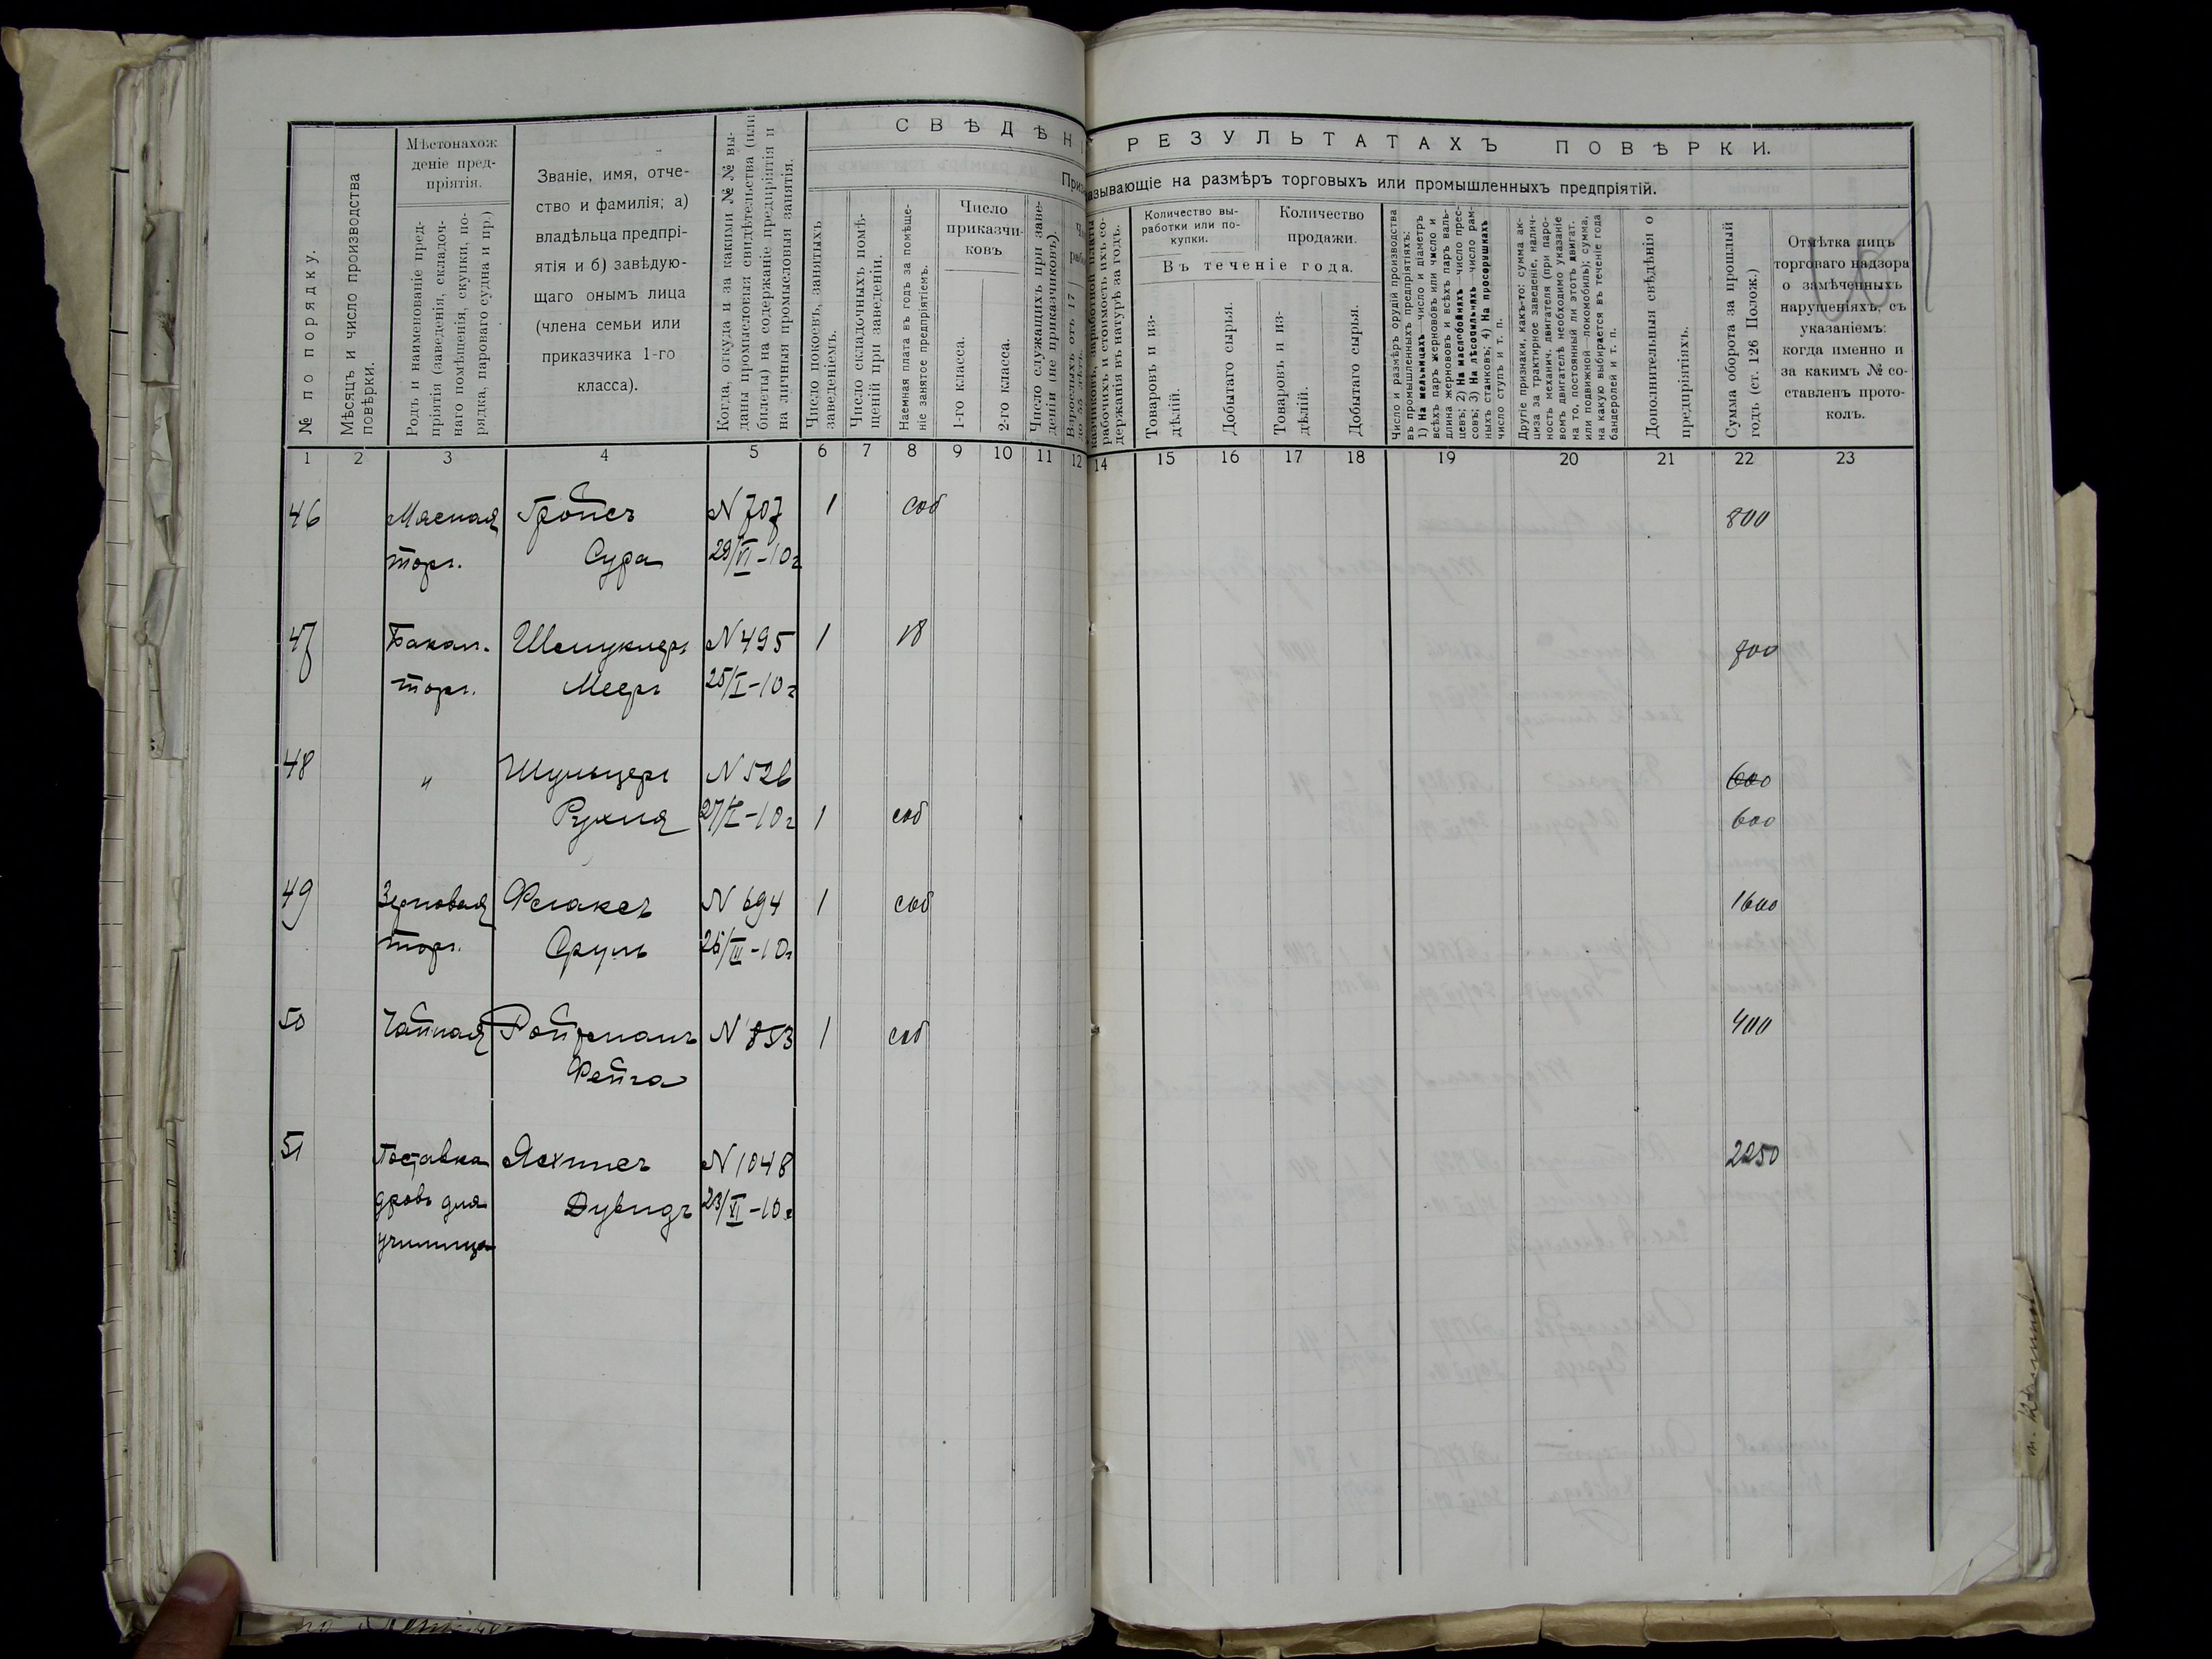 СВѢДѢН РЕЗУЛЬТАТАХЪ ПОВѢРКИ.
Приз азывающіе на размѣръ торговыхъ или промышленныхъ предпріятій.
№ по порядку.
Мѣсяцъ и число производства
повѣрки.
Мѣстонахож
деніе пред-
пріятія.
Родъ и наименованіе пред-
пріятія (заведенія, складоч-
наго помѣщенія, скупки, по-
рядка, парового судна и пр.)
Званіе, имя, отче-
ство и фамилія; а)
владѣльца предпрі-
ятія и б) завѣдую-
щаго онымъ лица
(члена семьи или
приказчика 1-го
класса).
Когда, откуда и за какими №№ вы-
даны промысловыя свидѣтельства (или
билеты) на содержаніе предпріятія и
на личныя промысловыя занятія.
Число покоевъ, занятыхъ
заведеніемъ.
Число складочныхъ помѣ-
щеній при заведеніи.
Наемная плата въ годъ за помѣще-
ніе занятое предпріятіемъ.
Число
приказчи-
ковъ
1-го класса.
2-го класса.
Число служащихъ при заве-
деніи (не приказчиковъ).
Взрослыхъ отъ 17
рабочихъ и стоимость ихъ со-
держанія въ натурѣ за годъ.
Количество вы-
работки или по-
купки.
Количество
продажи.
Въ теченіе года.
Товаровъ и из-
дѣлій.
Добытаго сырья.
Товаровъ и из-
дѣлій.
Добытаго сырья.
Число и размѣръ орудій производства
въ промышленныхъ предпріятіяхъ:
1) На мельницахъ—число и діаметръ
всѣхъ паръ жернововъ или число и
длина жернововъ и всѣхъ паръ валь-
цевъ; 2) На маслобойняхъ—число прес-
совъ; 3) На лѣсопильняхъ—число рам-
ныхъ станковъ; 4) На просорушкахъ
число ступъ и т. п.
Другіе признаки, какъ-то: сумма ак-
циза за трактирное заведеніе, налич-
ность механич. двигателя (при паро-
вомъ двигателѣ необходимо указаніе
на то, постоянный ли этотъ двигат.
или подвижной—локомобиль); сумма,
на какую выбирается въ теченіе года
бандеролей и т. п.
Дополнительныя свѣдѣнія о
предпріятіяхъ.
Сумма оборота за прошлый
годъ (ст. 126 Полож.)
Отмѣтка лицъ
торговаго надзора
о замѣченныхъ
нарушеніяхъ, съ
указаніемъ:
когда именно и
за какимъ № со-
ставленъ прото-
колъ.
1 2 3 4 5 6 7 8 9 10 11 12 14 15 16 17 18 19 20 21 22 23
46 Мясная Гройсъ N 707 1 соб 800
торг. Сура 29/VI-10г
47 Бакал. Шемуклеръ N 495 1 18 700
торг. Мееръ 25/I-10г
48 " Шульцеръ N 526 600
Рухля 27/I-10г 1 соб 600
49 Зерновая Флаксъ N 694 1 соб 1600
торг. Сруль 26/III-10г
50 Чайная Ройтманъ N 853 1 соб 400
Фейга
51 Поставка Яхнисъ N 1048 2250
дровъ для Дувидъ 23/VI-10г
училища